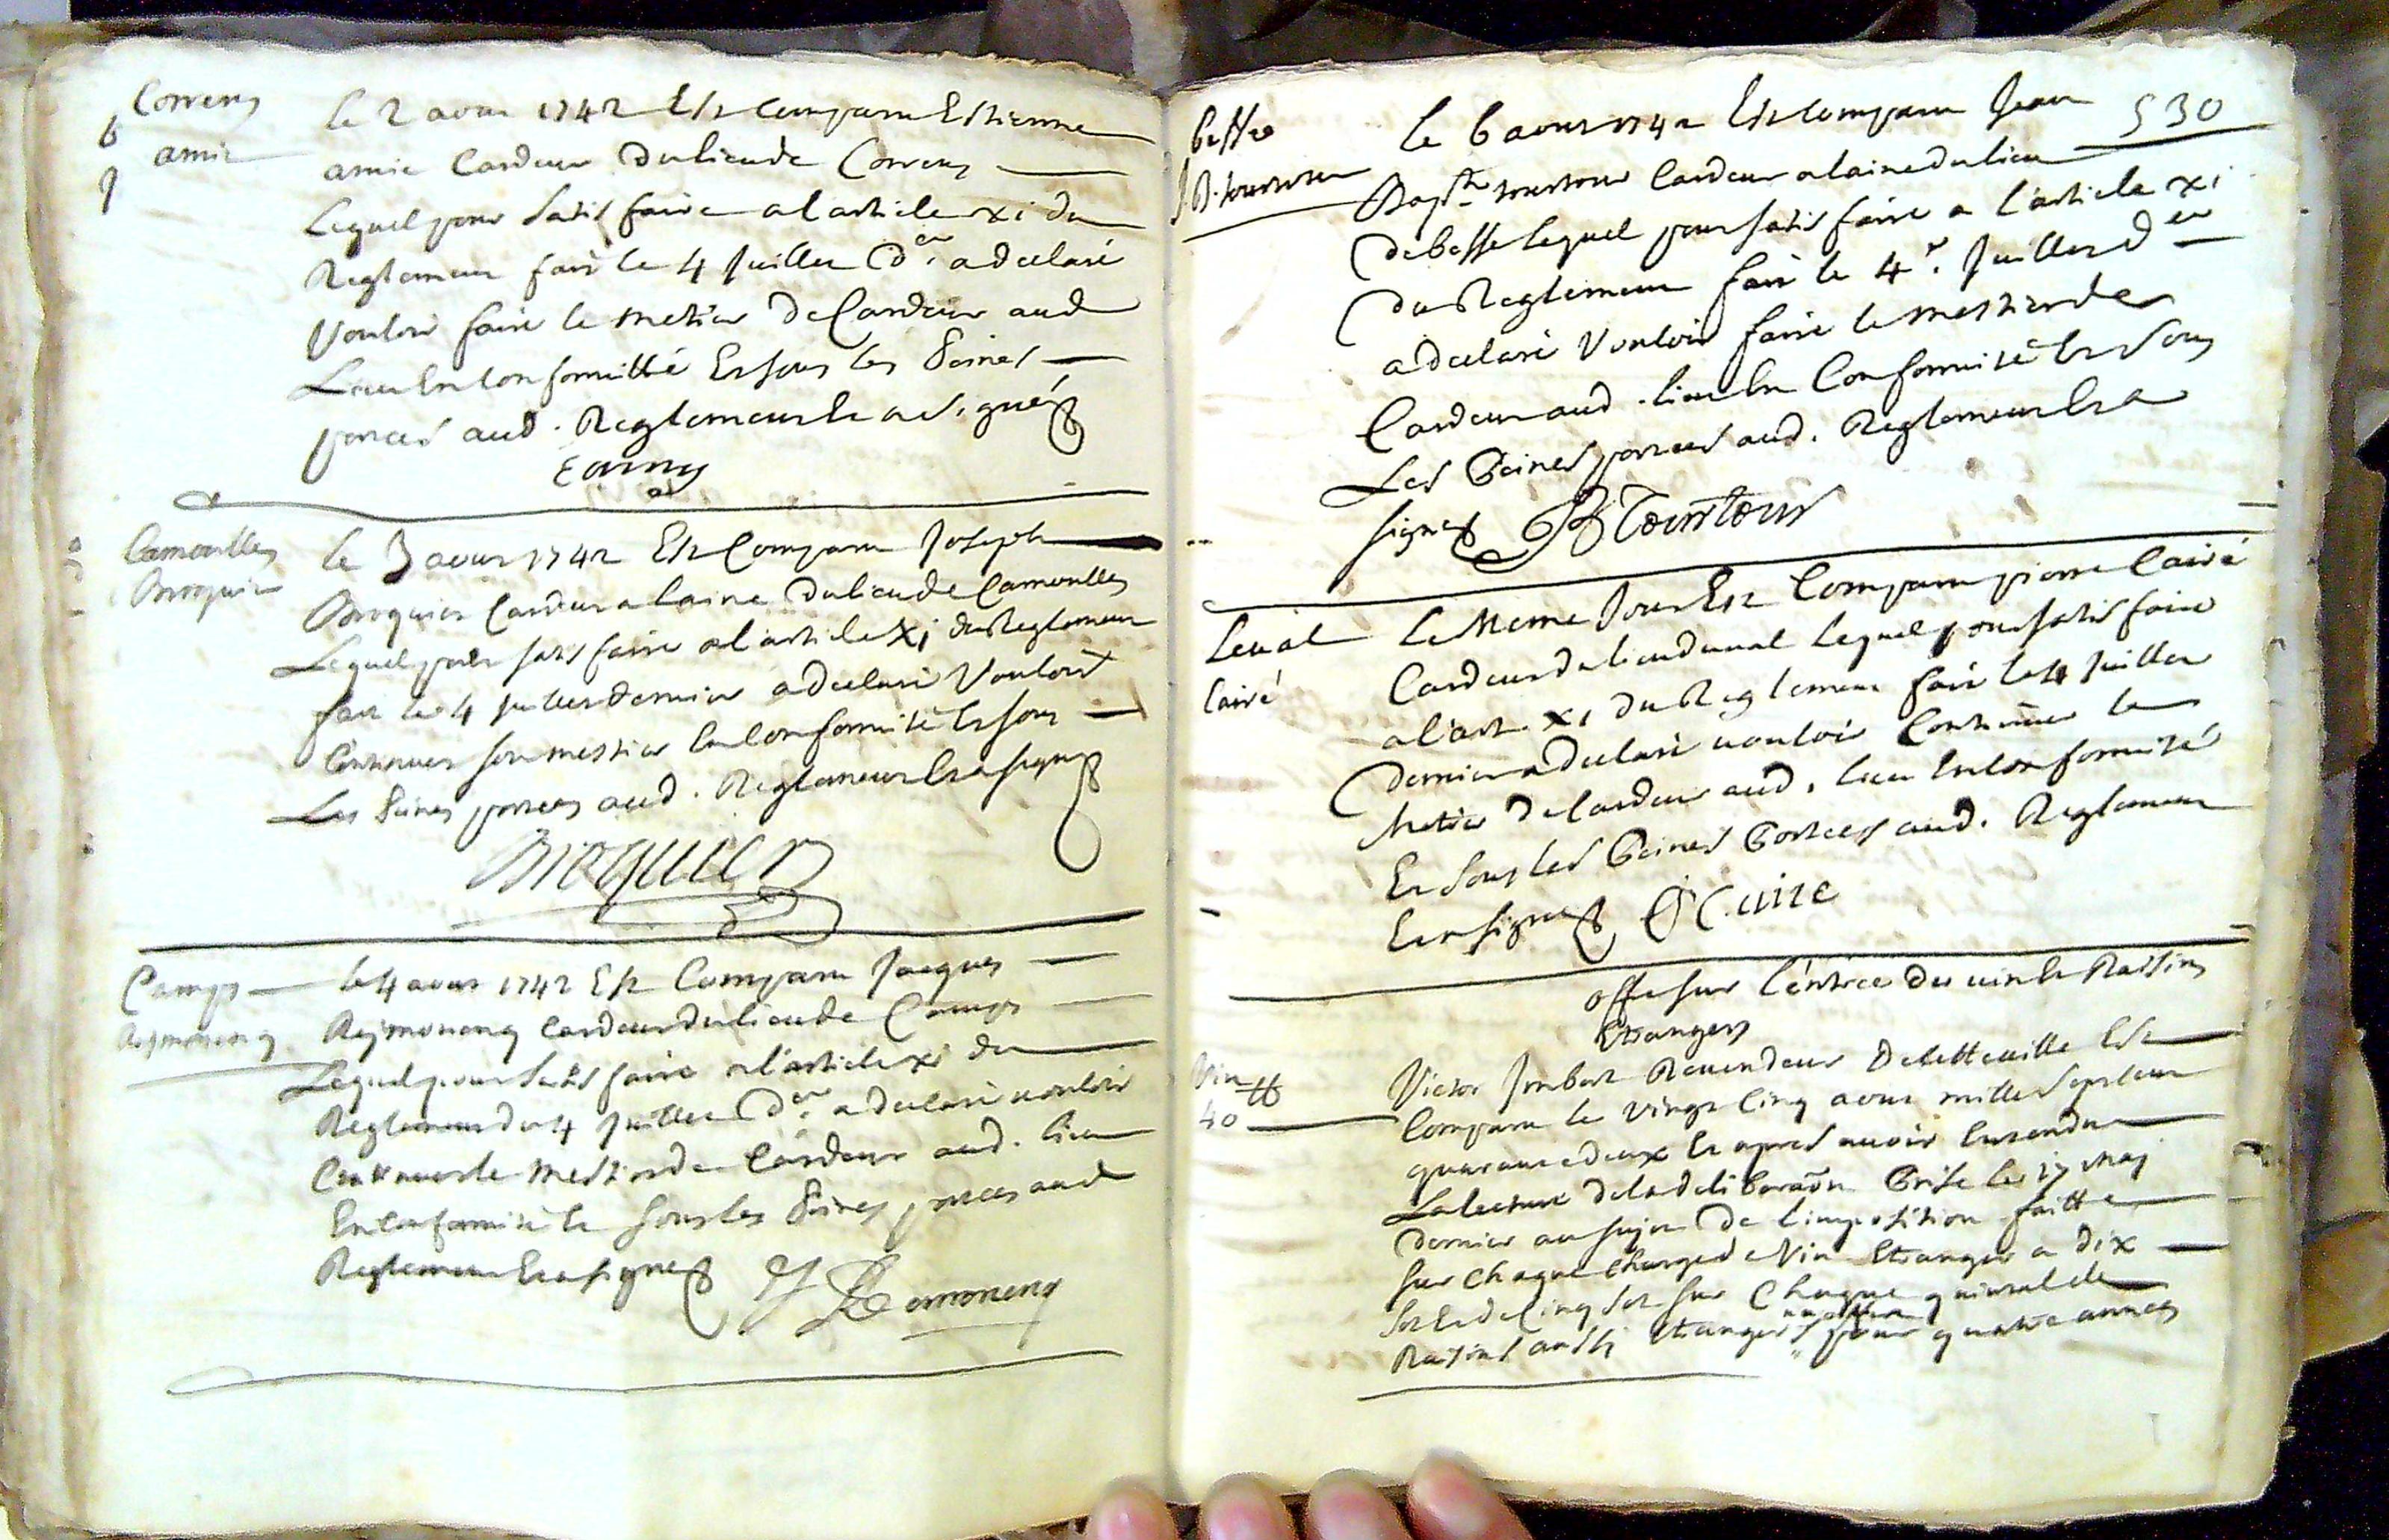 Correns
amic
le 2 aoust 1742 Est comparu Estienne
amic Cardeur du lieu de Correns
Lequel pour satisfaire a l'article xi du
Reglement fait le 4 Juillet der a declaré
Vouloir faire le metier de Cardeur aud
Lieu en conformitté Et sous les Peines
portées aud. Reglement et a signé
E amy
Camoulles
Broquier
le 3 aoust 1742 Est Comparu Joseph
Broquier Cardeur a laine du lieu de Camoulles
Lequel pour satisfaire a l'article xi du Reglement
fait le 4 juillet dernier a declaré Vouloir
Continuer son mestier en conformité et sous
Les Peines portées aud. Reglement et a signé
Broquier
Camps
Reymoneng
le 4 aoust 1742 Est Comparu Jacques
Reymoneng Cardeur du lieu de Camps
Lequel pour satisfaire a l'article xi du
Reglement du 4 Juillet der a declaré vouloir
Continuer le mestier de Cardeur aud. lieu
En conformité et sous les Peines portées aud
Reglement et a signé J Remoneng
530
besse
J B. tourtour
Le 6 aoust 1742 Est Comparu Jean
Bapte tourtour Cardeur a laine du lieu
de besse lequel pour satisfaire a l'article xi
du Reglement fait le 4e. Juillet der
a declaré Vouloir faire le mestier de
Cardeur aud. lieu en Conformité et sous
Les Peines portées aud. Reglement et a
signé JB Tourtour
Leval
Cairé
Le Meme Jour Est Comparu pierre Cairé
Cardeur du lieu du val Lequel pour satisfaire
a l'art. xi du Reglement fait le 4 Juillet
dernier a declaré vouloir Continuer le
Metier de Cardeur aud. lieu en conformité
Et sous les Peines Portées aud. Reglement
Et a signé P Caire
offe sur l'entrée du vin et Raisins
Etrangers
Vin
40
Victor Imbert Revendeur de cette ville Est
Comparu le vingt cinq aoust mille sept cens
quarante deux Et apres avoir entendu
La lecture de la deliberaõn Prise le 17 may
dernier au sujet de l'imposition faitte
sur chaque charge de Vin Etranger a dix
sols et de cinq sols sur Chaque quintal de
Raisins aussi Etrangers pour quatre années